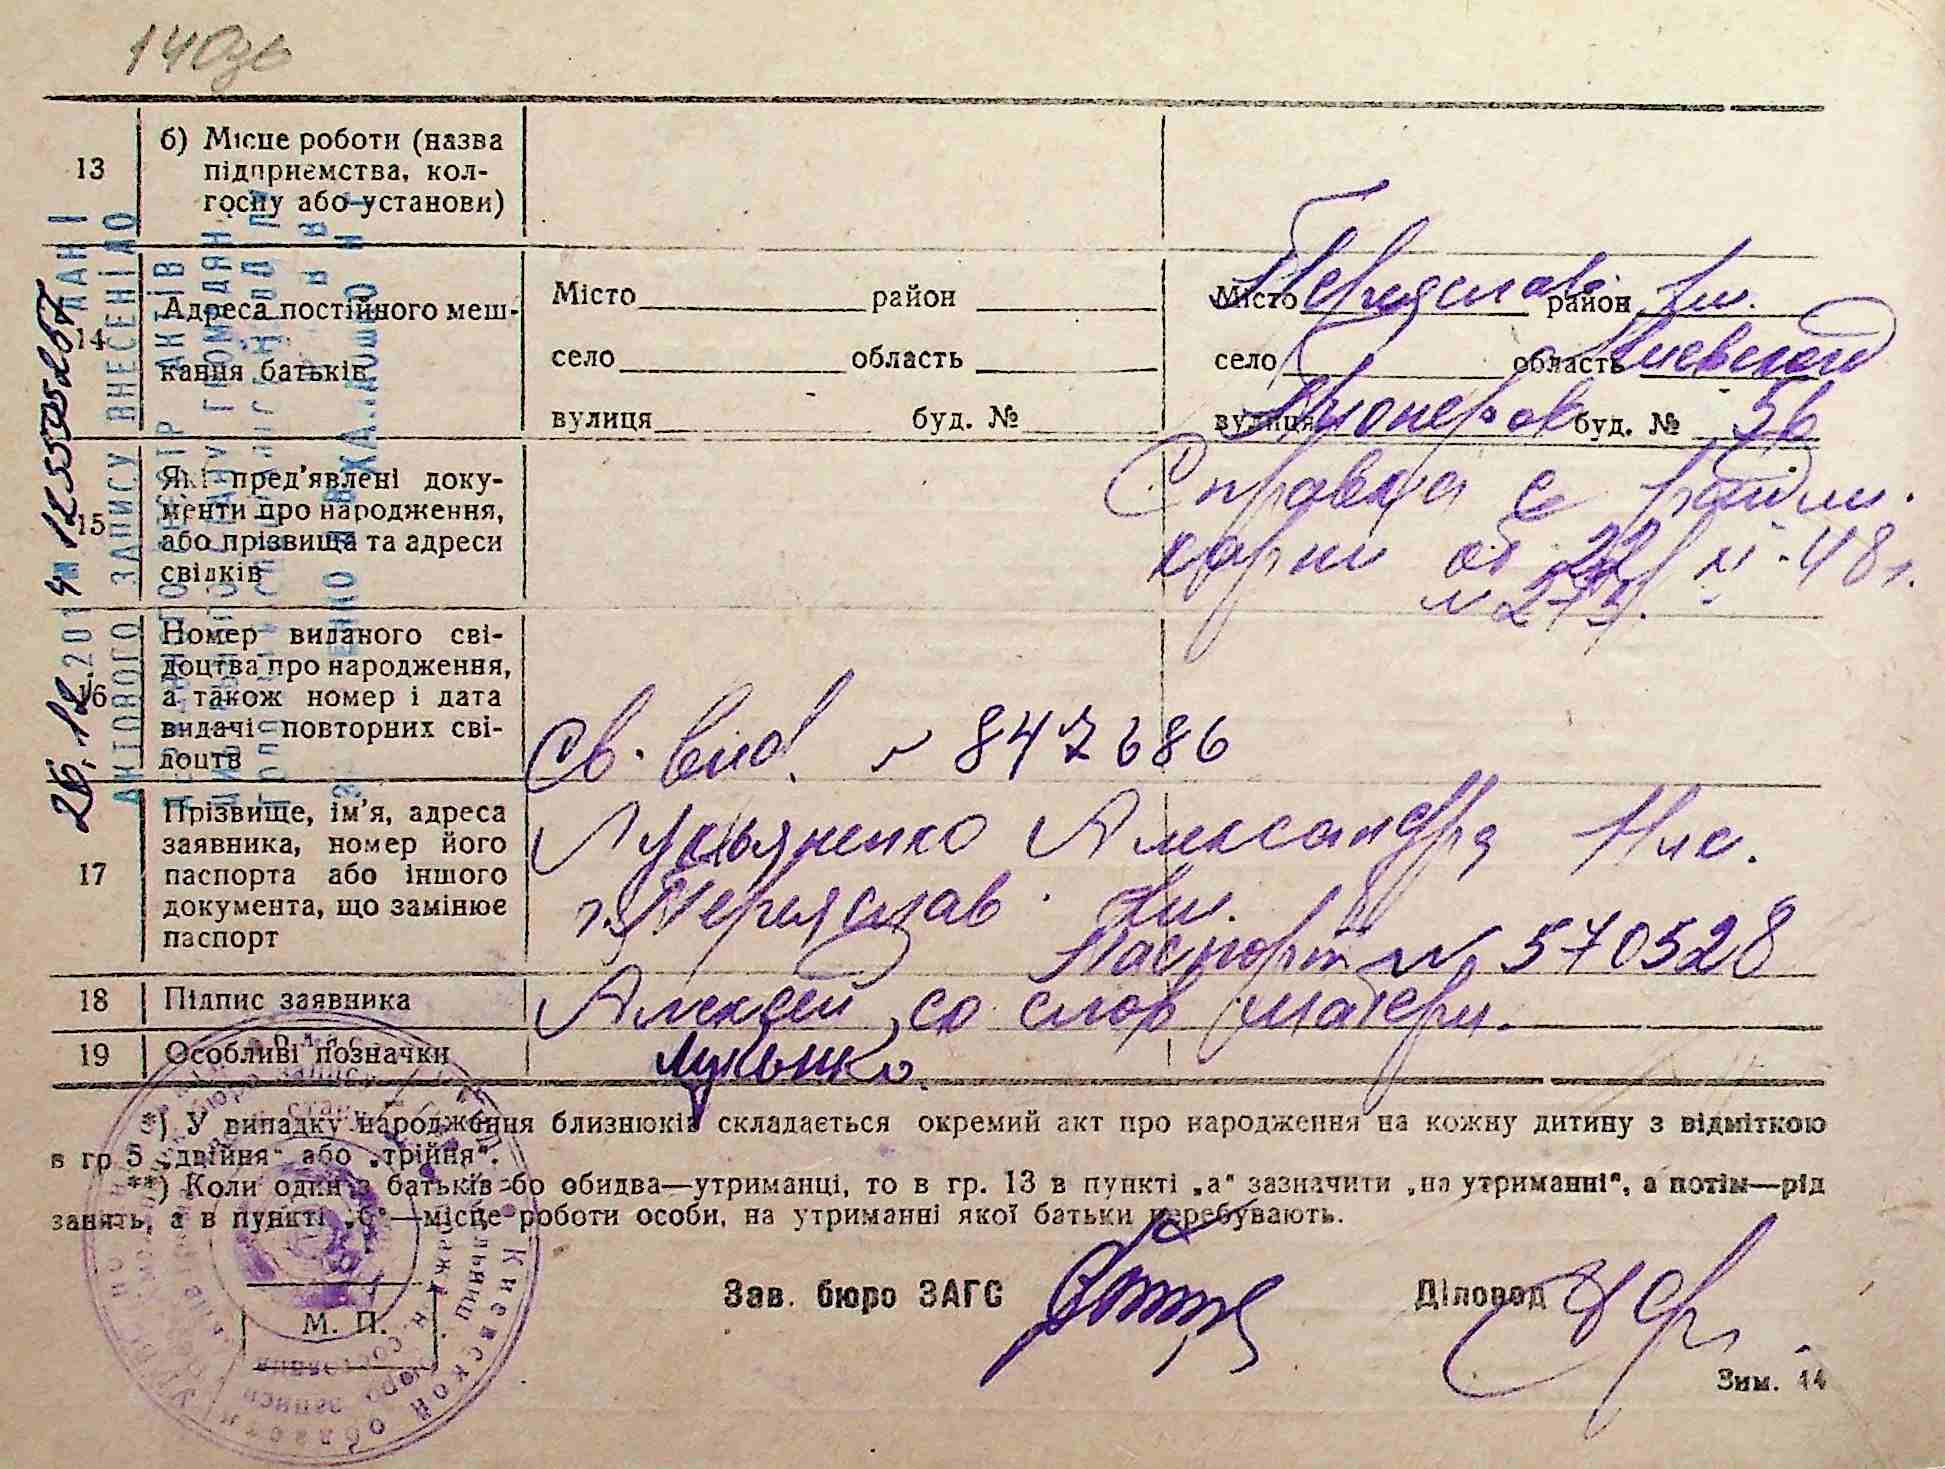 13
б) Місце роботи (назва
підприємства, кол-
госпу або установи)
14
Адреса постійного меш-
кання батьків
Місто район
село область
вулиця буд. №
Місто Переяслав район Хм.
село область Киевской
вулиця Пионеров буд. № 56
15
Які пред'явлені доку-
менти про народження,
або прізвища та адреси
свідків
Справка с
от 22 48 г.
16
Номер виданого сві-
доцтва про народження,
а також номер і дата
видачі повторних сві-
доцтв
Св. выд. № 847686
17
Прізвище, ім'я, адреса
заявника, номер його
паспорта або іншого
документа, що замінює
паспорт
Лукьяненко Александра Ник.
г. Переяслав Хм.
Паспорт № 570528
18
Підпис заявника
Алексей со слов матери.
19
Особливі позначки
*) У випадку народження близнюків складається окремий акт про народження на кожну дитину з відміткою
в гр 5 „двійня" або „трійня".
**) Коли один з батьків бо обидва—утриманці, то в гр. 13 в пункті „а" зазначити „на утриманні", а потім—рід
занять, а в пункті „б"—місце роботи особи, на утриманні якої батьки перебувають.
Зав. бюро ЗАГС
Діловод
М. П.
Зим. 44
АКТОВОГО ЗАПИСУ ВНЕСЕНІ ДО